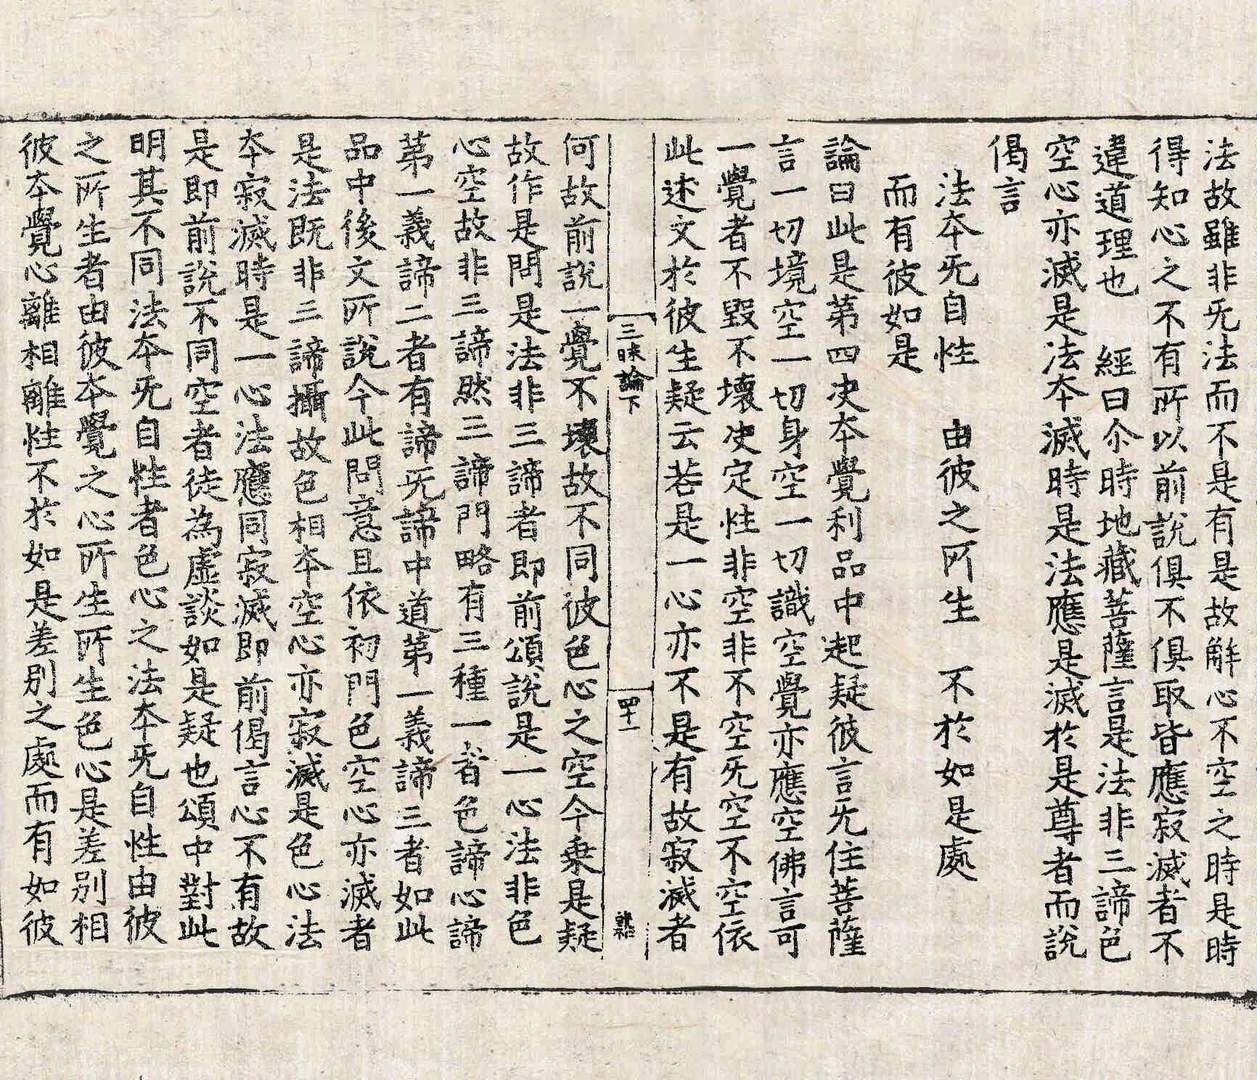 法故雖非旡法而不是有是故解心不空之時是時
得知心之不有所以前說俱不俱取皆應寂滅者不
違道理也　經曰尒時地藏菩薩言是法非三諦色
空心亦滅是法夲滅時是法應是滅於是尊者而說
偈言
法夲旡自性　由彼之所生　不於如是處
而有彼如是
論曰此是第四决夲覺利品中起疑彼言旡住菩薩
言一切境空一切身空一切識空覺亦應空佛言可
一覺者不毀不壞决定性非空非不空旡空不空依
此述文於彼生疑云若是一心亦不是有故寂滅者
三昧論下　四十一
何故前說一覺不壞故不同彼色心之空今乗是疑
故作是問是法非三諦者即前頌說是一心法非色
心空故非三諦然三諦門略有三種一者色諦心諦
苐一義諦二者有諦旡諦中道苐一義諦三者如此
品中後文所說今此問意且依初門色空心亦滅者
是法既非三諦攝故色相夲空心亦寂滅是色心法
夲寂滅時是一心法應同寂滅即前偈言心不有故
是即前說不同空者徒為虛談如是疑也頌中對此
明其不同法夲旡自性者色心之法夲旡自性由彼
之所生者由彼夲覺之心所生所生色心是差別相
彼夲覺心離相離性不於如是差別之處而有如彼